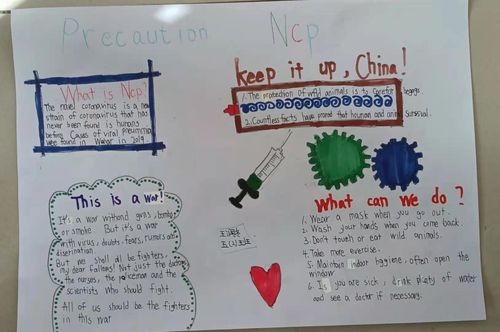 Precaution Ncp
What is Ncp?
The novel coronavirus is a new
strain of coronavirus that has
never been found is humans
before Cases of viral pneumonia
were found in Wuhan in 2019
keep it up, China!
1. The protection of wild animals is to
2. Countless facts have proved that houman and anim survival.
This is a war!
It's a war withond guns, bombs
or smoke. But it's a war
with virus, doubts, fears, rumors and
diserination
But we shall all be fighters,
my dear fallons! Not just the doctors,
the nurses, the policeman and the
scientists who should fight.
All of us should be the fighters
in this war
What can we do?
1. Wear a mask when you go out.
2. Wash your hands when you come back.
3. Don't touch or eat wild animals.
4. Take more exercise.
5. Maintain indoor hygiene, often open the
window
6. If you are sick, drink plenty of water
and see a doctor if necessary.